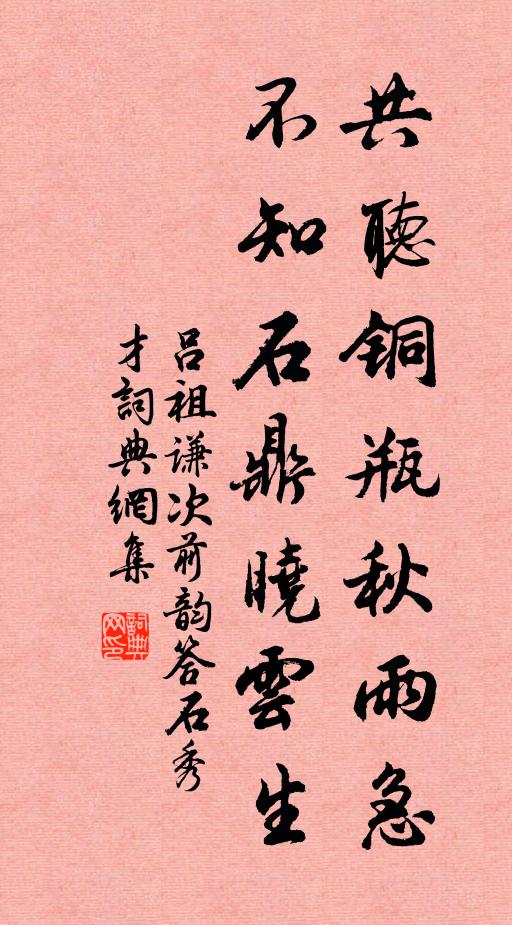 共聽铜瓶秋雨急
不知石鼎曉雲生
呂祖谦次前韵答石秀
才詞典網集
詞典
网印